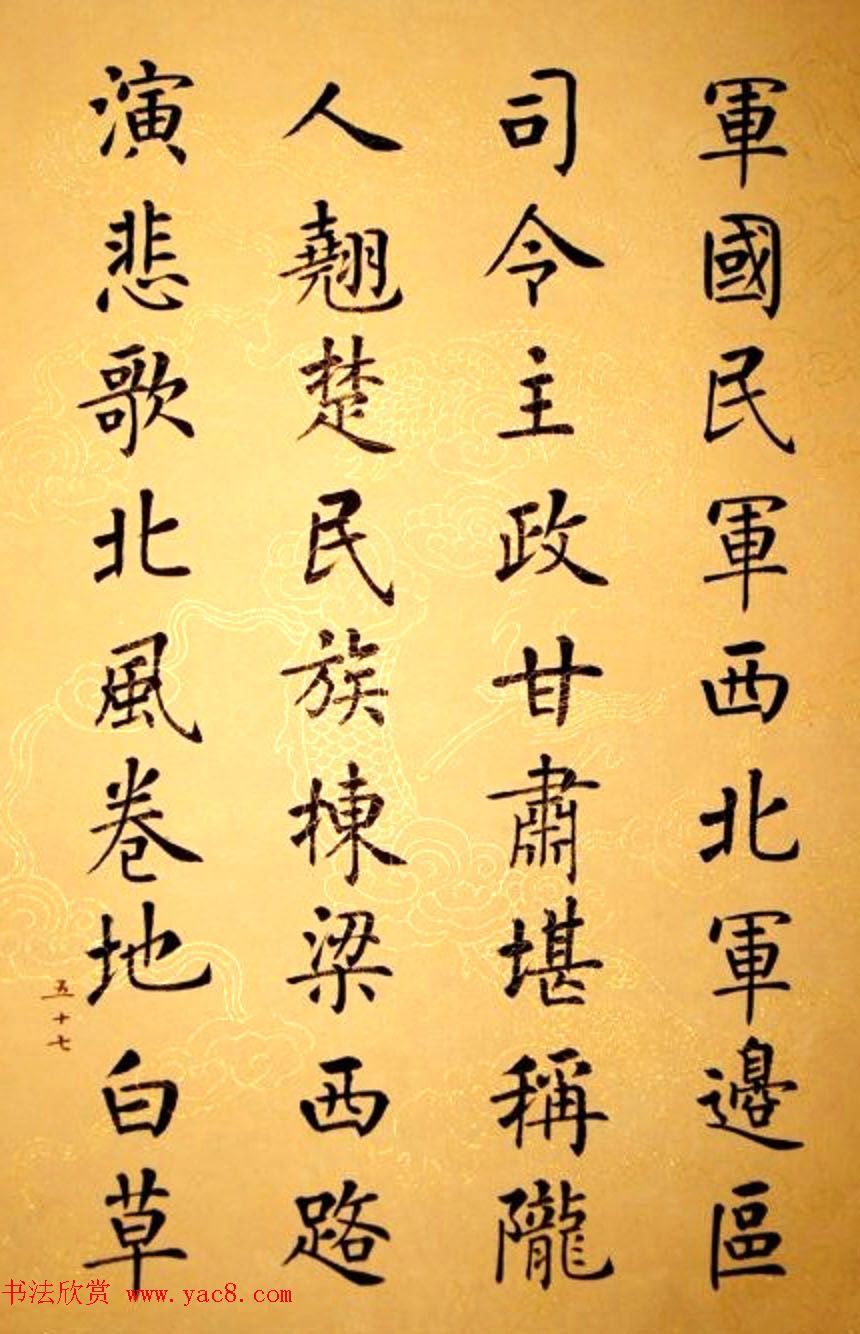 軍國民軍西北軍邊區
司令主政甘肅堪稱隴
人翹楚民族棟梁西路
演悲歌北風卷地白草
五十七
书法欣赏 www.yac8.com